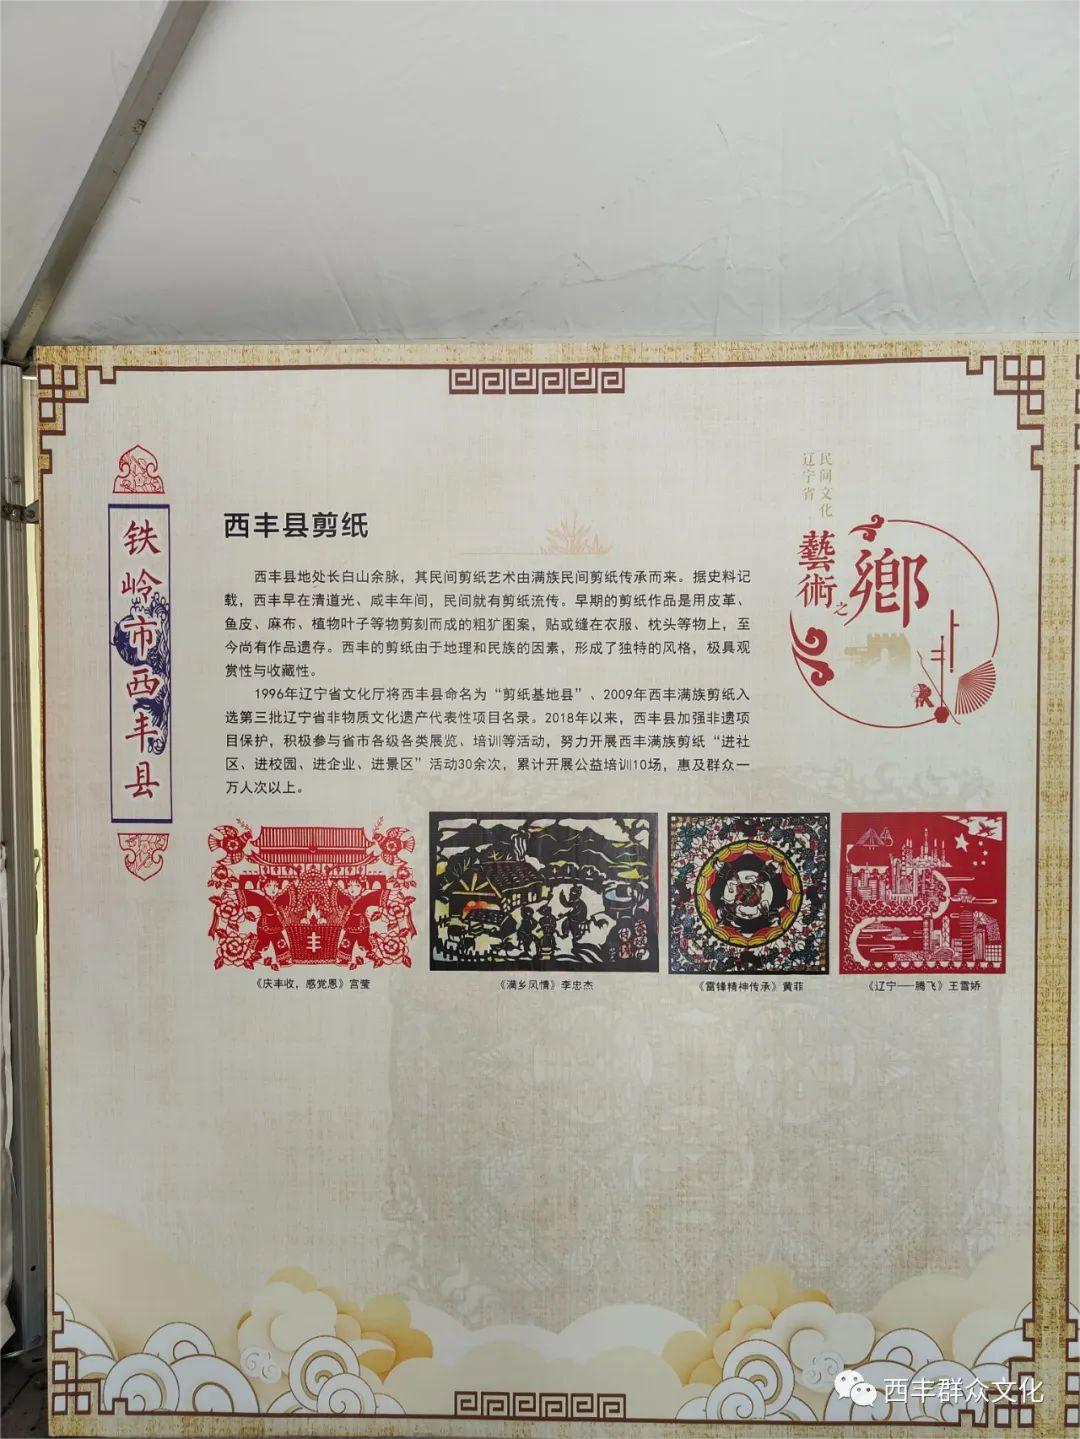 铁岭市西丰县
西丰县剪纸
西丰县地处长白山余脉，其民间剪纸艺术由满族民间剪纸传承而来。据史料记
载，西丰早在清道光、咸丰年间，民间就有剪纸流传。早期的剪纸作品是用皮革、
鱼皮、麻布、植物叶子等物剪刻而成的粗犷图案，贴或缝在衣服、枕头等物上，至
今尚有作品遗存。西丰的剪纸由于地理和民族的因素，形成了独特的风格，极具观
赏性与收藏性。
1996年辽宁省文化厅将西丰县命名为“剪纸基地县”、2009年西丰满族剪纸入
选第三批辽宁省非物质文化遗产代表性项目名录。2018年以来，西丰县加强非遗项
目保护，积极参与省市各级各类展览、培训等活动，努力开展西丰满族剪纸“进社
区、进校园、进企业、进景区”活动30余次，累计开展公益培训10场，惠及群众一
万人次以上。
辽宁省
民间文化
藝術之鄉
丰
《庆丰收，感党恩》宫莹
《满乡风情》李忠杰
《雷锋精神传承》黄菲
《辽宁——腾飞》王雪娇
西丰群众文化